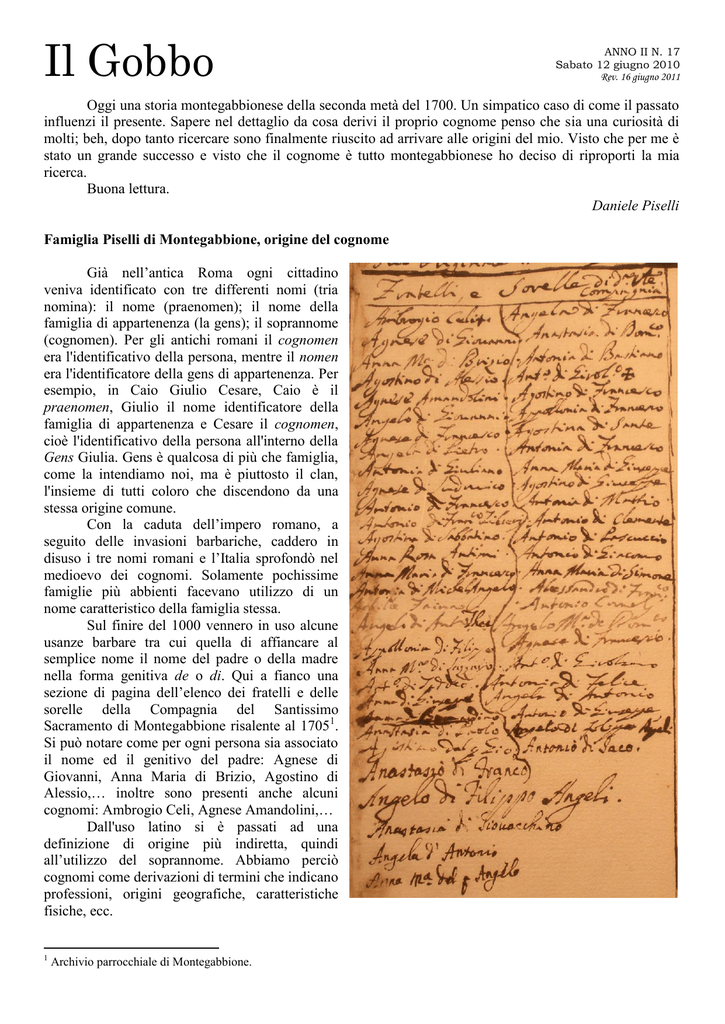 Il Gobbo
ANNO II N. 17
Sabato 12 giugno 2010
Rev. 16 giugno 2011
Oggi una storia montegabbionese della seconda metà del 1700. Un simpatico caso di come il passato
influenzi il presente. Sapere nel dettaglio da cosa derivi il proprio cognome penso che sia una curiosità di
molti; beh, dopo tanto ricercare sono finalmente riuscito ad arrivare alle origini del mio. Visto che per me è
stato un grande successo e visto che il cognome è tutto montegabbionese ho deciso di riproporti la mia
ricerca.
Buona lettura.
Daniele Piselli
Famiglia Piselli di Montegabbione, origine del cognome
Già nell’antica Roma ogni cittadino
veniva identificato con tre differenti nomi (tria
nomina): il nome (praenomen); il nome della
famiglia di appartenenza (la gens); il soprannome
(cognomen). Per gli antichi romani il cognomen
era l'identificativo della persona, mentre il nomen
era l'identificatore della gens di appartenenza. Per
esempio, in Caio Giulio Cesare, Caio è il
praenomen, Giulio il nome identificatore della
famiglia di appartenenza e Cesare il cognomen,
cioè l'identificativo della persona all'interno della
Gens Giulia. Gens è qualcosa di più che famiglia,
come la intendiamo noi, ma è piuttosto il clan,
l'insieme di tutti coloro che discendono da una
stessa origine comune.
Con la caduta dell’impero romano, a
seguito delle invasioni barbariche, caddero in
disuso i tre nomi romani e l’Italia sprofondò nel
medioevo dei cognomi. Solamente pochissime
famiglie più abbienti facevano utilizzo di un
nome caratteristico della famiglia stessa.
Sul finire del 1000 vennero in uso alcune
usanze barbare tra cui quella di affiancare al
semplice nome il nome del padre o della madre
nella forma genitiva de o di. Qui a fianco una
sezione di pagina dell’elenco dei fratelli e delle
sorelle della Compagnia del Santissimo
Sacramento di Montegabbione risalente al 1705¹.
Si può notare come per ogni persona sia associato
il nome ed il genitivo del padre: Agnese di
Giovanni, Anna Maria di Brizio, Agostino di
Alessio,… inoltre sono presenti anche alcuni
cognomi: Ambrogio Celi, Agnese Amandolini,…
Dall'uso latino si è passati ad una
definizione di origine più indiretta, quindi
all’utilizzo del soprannome. Abbiamo perciò
cognomi come derivazioni di termini che indicano
professioni, origini geografiche, caratteristiche
fisiche, ecc.
Fratelli e Sorelle di
Compagnia
Agnese di Giovanni
Anna Mª di Brizio
Antonia di Bastiano
Agostino di Alessio
Agnese Amandolini
Agostino di Francesco
Angelo di Giovanni
Agnese di Francesco
Agostina di Sante
Antonia di Francesco
Antonia di Giuliano
Anna Maria di Giuseppe
Agostino di Giuseppe
Antonio di Francesco
Antonio di Clemente
Antonio di Giacomo
Anna Maria di Francesco
Anna Maria di Simone
Agnese di Francesco
Antonia di Felice
Angela di Antonio
Antonio di Giuseppe
Antonio di Jaco.
Anastasio di Franco
Angelo di Filippo Angeli.
Anastasia di Giovacchino
Angela d'Antonio
Anna Mª del Angelo
¹ Archivio parrocchiale di Montegabbione.